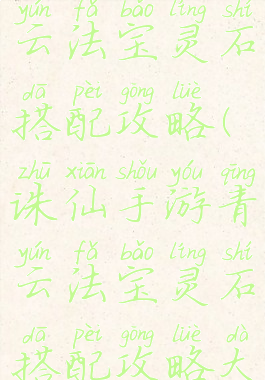 yún fǎ bǎo líng shí
云法宝灵石
dā pèi gōng lüè
搭配攻略(
zhū xiān shǒu yóu qīng
诛仙手游青
yún fǎ bǎo líng shí
云法宝灵石
dā pèi gōng lüè dà
搭配攻略大